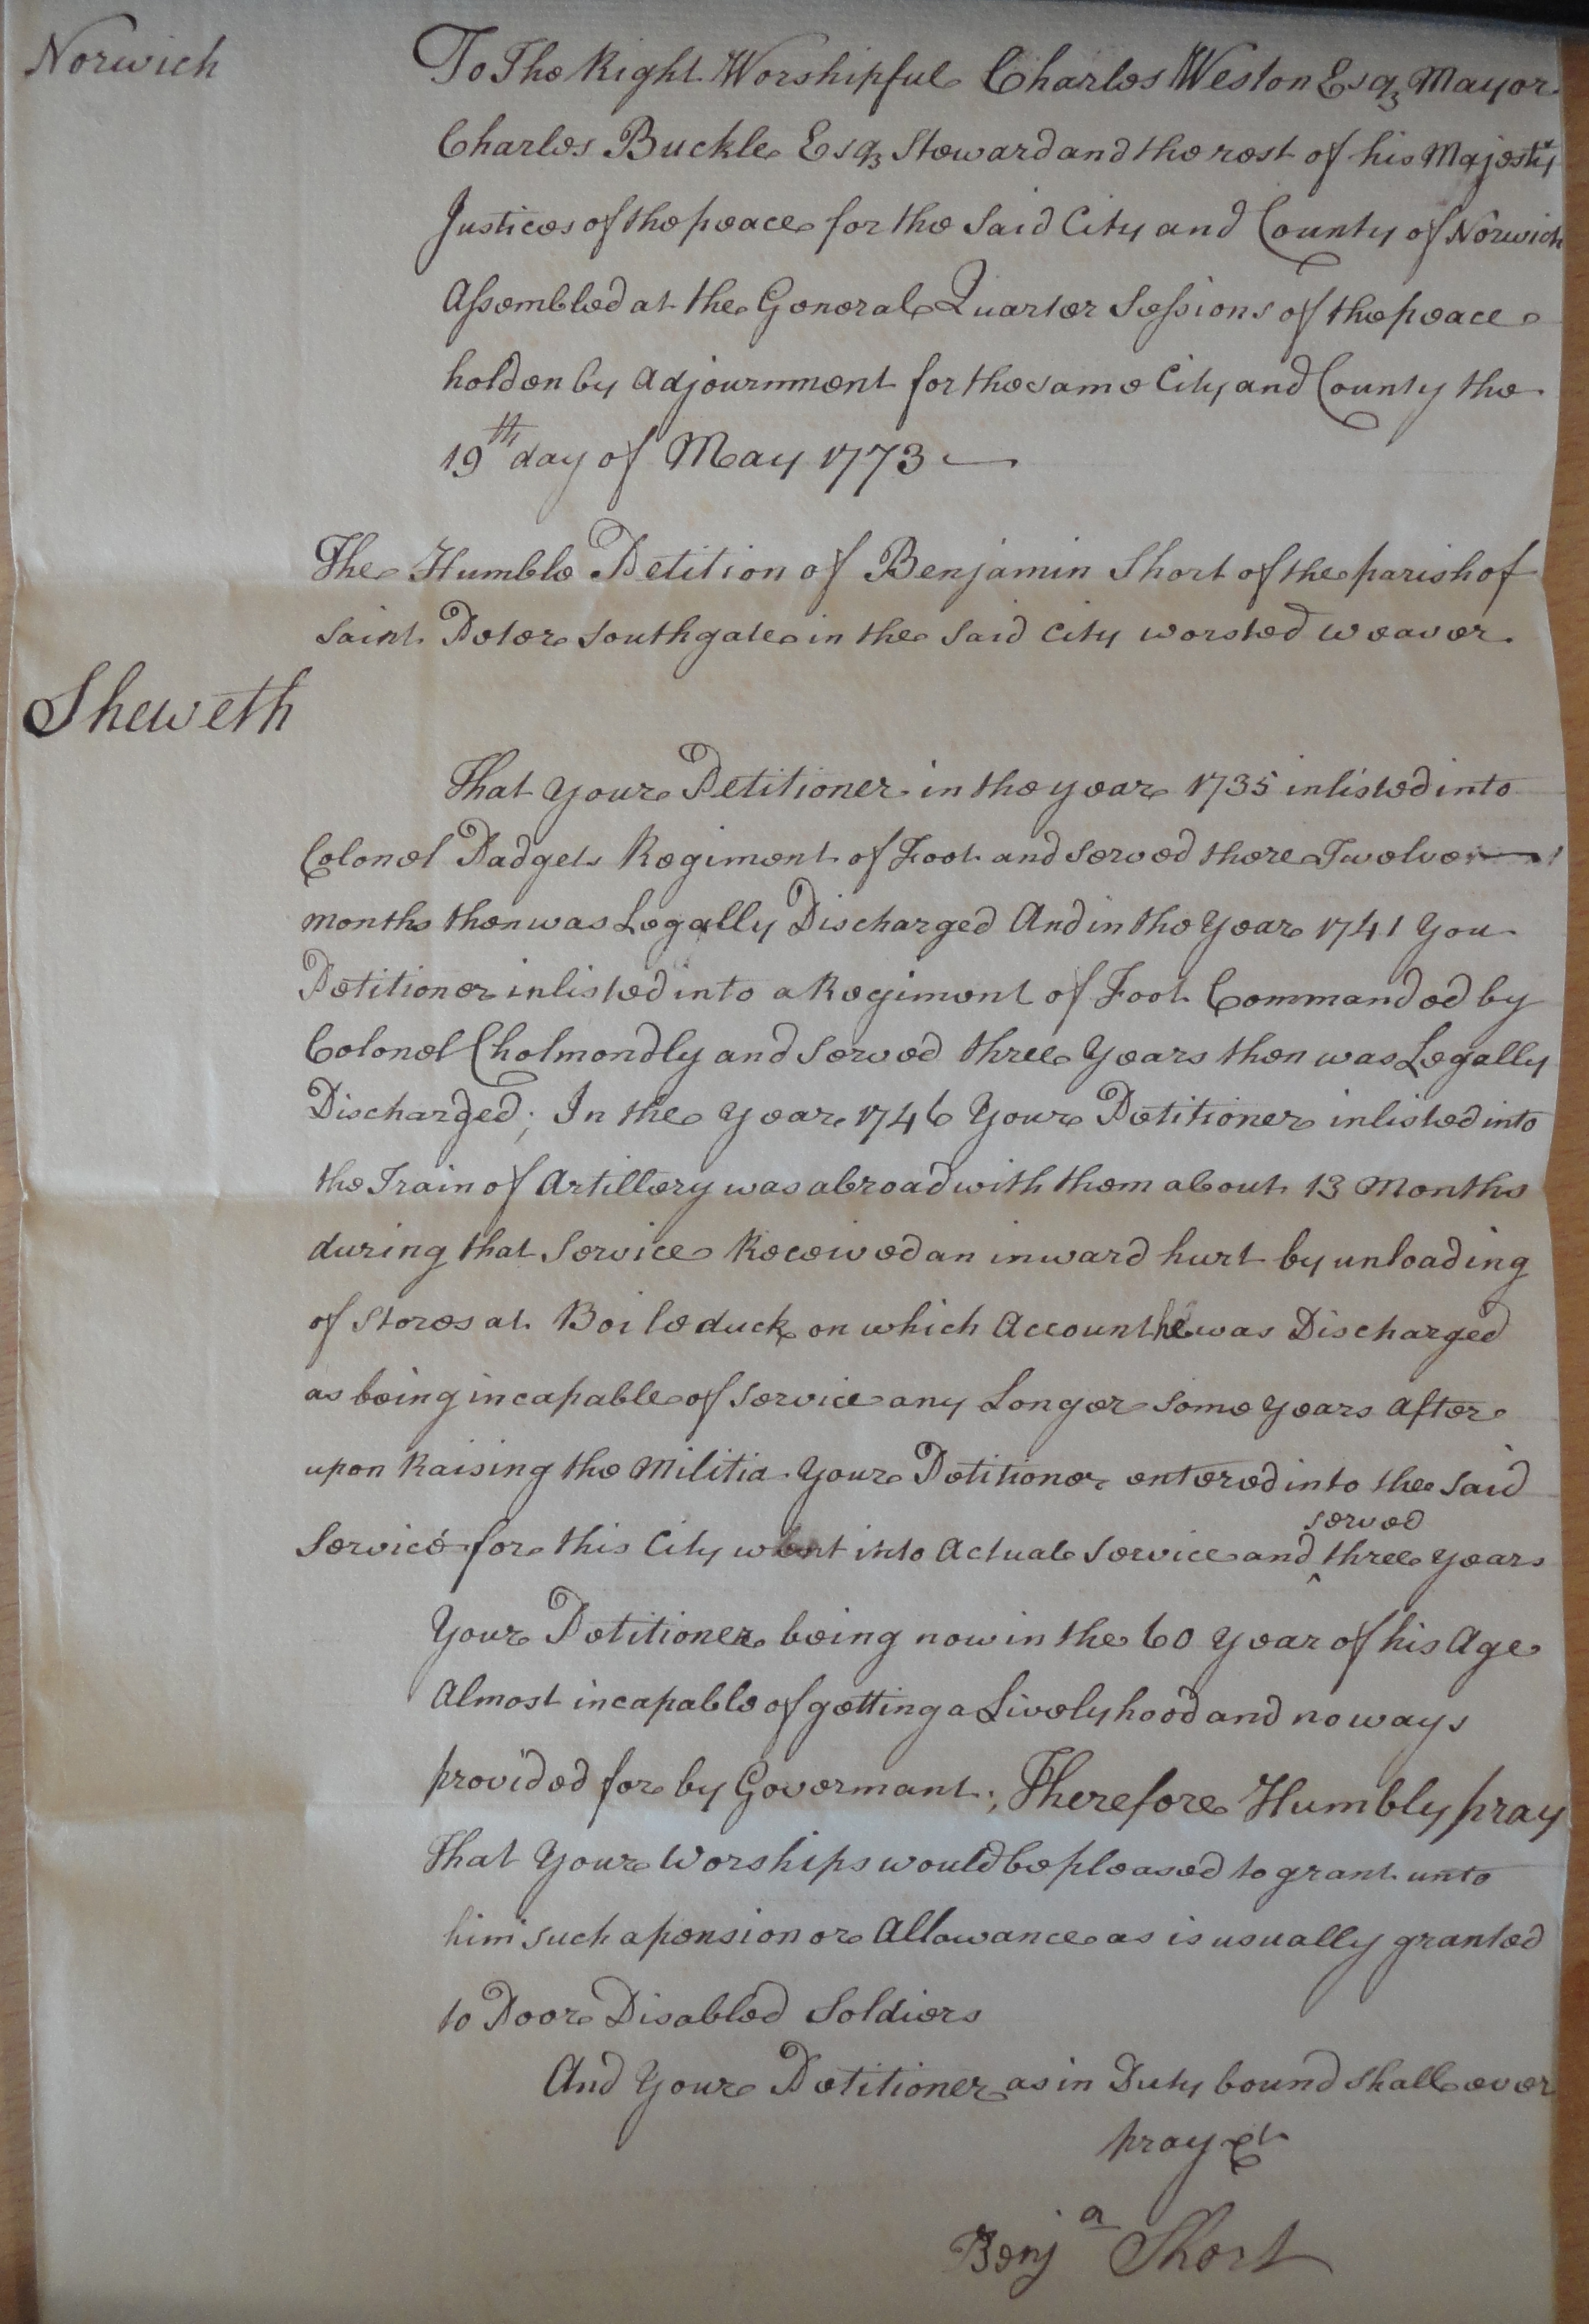 Norwich
To The Right Worshipful Charles Weston Esqr Mayor
Charles Buckle Esqr Steward and the rest of his Majestys
Justices of the peace for the said City and County of Norwich
Assembled at the General Quarter Sessions of the peace
holden by Adjournment for the same City and County the
19th day of May 1773
The Humble Petition of Benjamin Short of the parish of
Saint Peter Southgate in the said City worsted weaver
Sheweth
That Your Petitioner in the year 1735 inlisted into
Colonel Padgets Regiment of Foot and served there Twelve
months then was Legally Discharged And in the Year 1741 You
Petitioner inlisted into a Regiment of Foot Commanded by
Colonel Cholmondly and served three Years then was Legally
Discharged; In the Year 1746 Your Petitioner inlisted into
the Train of Artillery was abroad with them about 13 Months
during that Service Received an inward hurt by unloading
of Stores at Boileduck on which Account he was Discharged
as being incapable of Service any Longer some years after
upon Raising the Militia Your Petitioner entered into the said
Service for this City went into Actual Service and served three years
Your Petitioner being now in the 60 Year of his Age
Almost incapable of getting a Livelyhood and no ways
provided for by Govermant; Therefore Humbly pray
That Your Worships would be pleased to grant unto
him such a pension or Allowance as is usually granted
to Poor Disabled Soldiers
And Your Petitioner as in Duty bound shall ever
pray &c
Benja Short